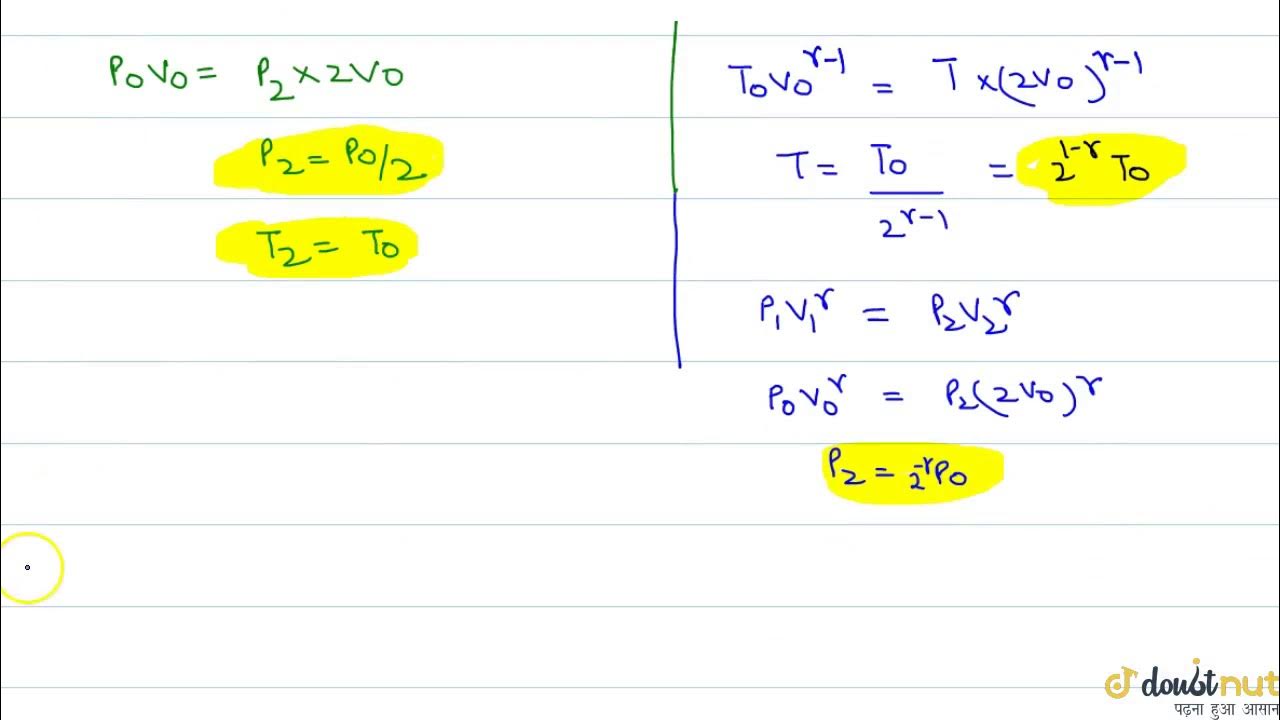 P₀V₀ = P₂ × 2V₀
P₂ = P₀/2
T₂ = T₀
T₀V₀^(r-1) = T × (2V₀)^(r-1)
T = T₀ / 2^(r-1) = 2^(1-r) T₀
P₁V₁^r = P₂V₂^r
P₀V₀^r = P₂(2V₀)^r
P₂ = 2^(-r) P₀
doubtnut
पढ़ना हुआ आसान